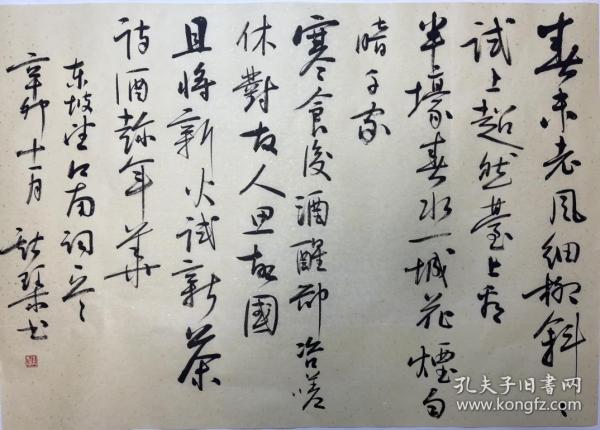 春未老風細柳斜〻
试上超然臺上看
半壕春水一城花煙雨
暗千家
寒食後酒醒却咨嗟
休對故人思故國
且将新火试新茶
诗酒趁年華
东坡望江南词
辛卯十一月 书
孔夫子旧书网
www.kongfz.com